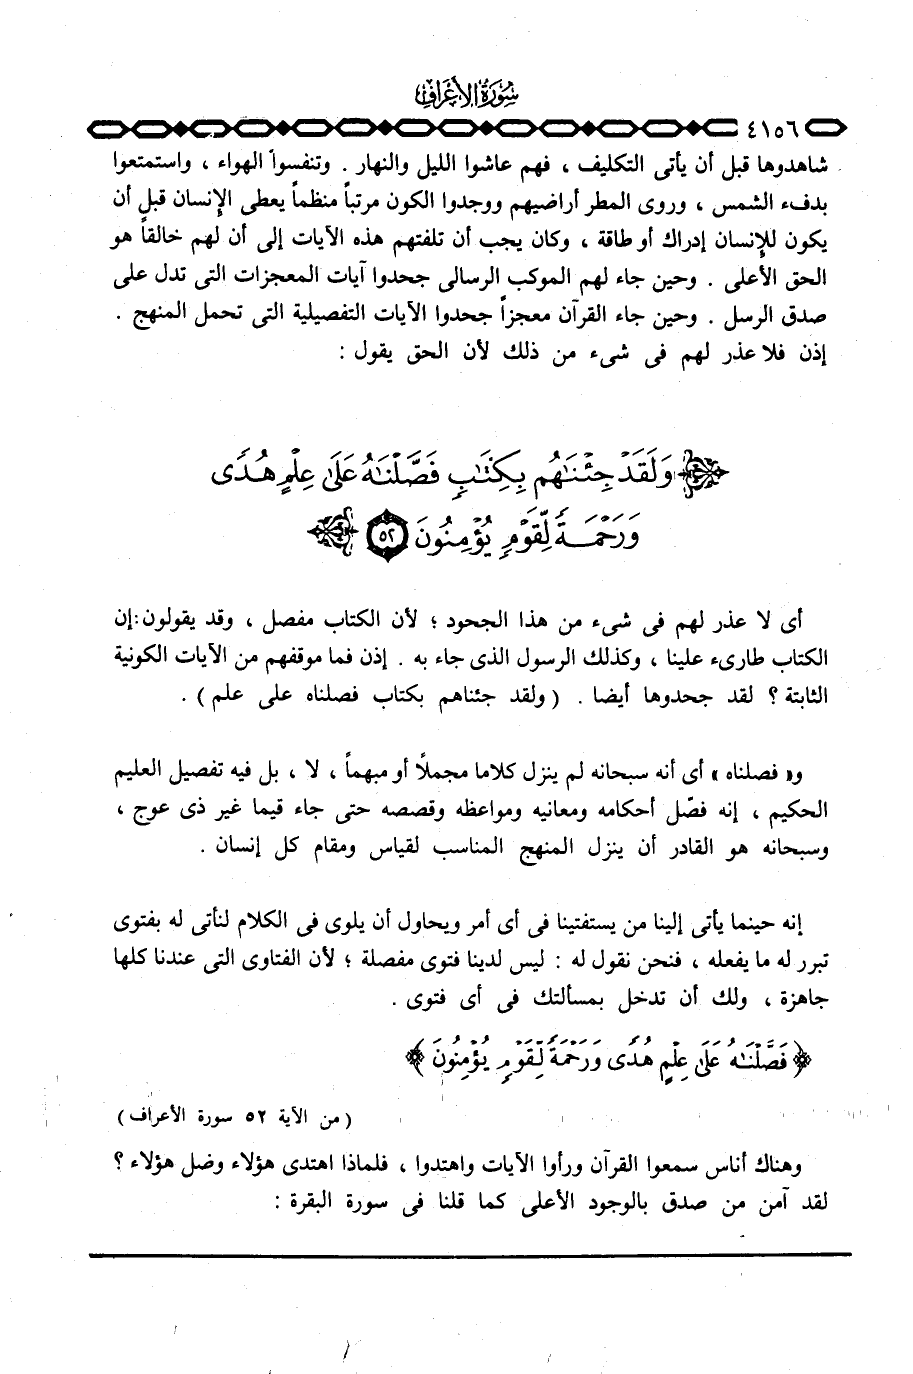 سُورَةُ الأَعْرَافِ
٤١٥٦
شاهدوها قبل أن يأتى التكليف ، فهم عاشوا الليل والنهار . وتنفسوا الهواء ، واستمتعوا
بدفء الشمس ، وروى المطر أراضيهم ووجدوا الكون مرتباً منظماً يعطى الإنسان قبل أن
يكون للإنسان إدراك أو طاقة ، وكان يجب أن تلفتهم هذه الآيات إلى أن لهم خالقاً هو
الحق الأعلى . وحين جاء لهم الموكب الرسالى جحدوا آيات المعجزات التى تدل على
صدق الرسل . وحين جاء القرآن معجزاً جحدوا الآيات التفصيلية التى تحمل المنهج .
إذن فلا عذر لهم فى شىء من ذلك لأن الحق يقول :
وَلَقَدْ جِئْنَٰهُم بِكِتَٰبٍ فَصَّلْنَٰهُ عَلَىٰ عِلْمٍ هُدًى
وَرَحْمَةً لِّقَوْمٍ يُؤْمِنُونَ ٥٢
أى لا عذر لهم فى شىء من هذا الجحود ؛ لأن الكتاب مفصل ، وقد يقولون : إن
الكتاب طارىء علينا ، وكذلك الرسول الذى جاء به . إذن فما موقفهم من الآيات الكونية
الثابتة ؟ لقد جحدوها أيضا . ( ولقد جئناهم بكتاب فصلناه على علم ) .
و« فصلناه » أى أنه سبحانه لم ينزل كلاما مجملًا أو مبهماً ، لا ، بل فيه تفصيل العليم
الحكيم ، إنه فصّل أحكامه ومعانيه ومواعظه وقصصه حتى جاء قيما غير ذى عوج ،
وسبحانه هو القادر أن ينزل المنهج المناسب لقياس ومقام كل إنسان .
إنه حينما يأتى إلينا من يستفتينا فى أى أمر ويحاول أن يلوى فى الكلام لنأتى له بفتوى
تبرر له ما يفعله ، فنحن نقول له : ليس لدينا فتوى مفصلة ؛ لأن الفتاوى التى عندنا كلها
جاهزة ، ولك أن تدخل بمسألتك فى أى فتوى .
﴿ فَصَّلْنَٰهُ عَلَىٰ عِلْمٍ هُدًى وَرَحْمَةً لِّقَوْمٍ يُؤْمِنُونَ ﴾
( من الآية ٥٢ سورة الأعراف )
وهناك أناس سمعوا القرآن ورأوا الآيات واهتدوا ، فلماذا اهتدى هؤلاء وضل هؤلاء ؟
لقد آمن من صدق بالوجود الأعلى كما قلنا فى سورة البقرة :